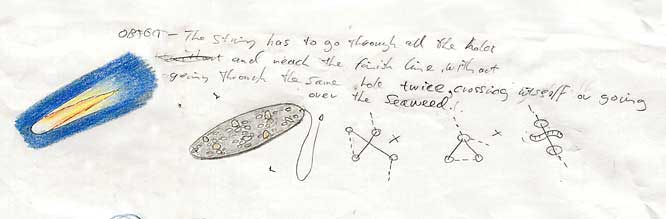 OBJECT - The string has to go through all the holes
and reach the finish line, without
going through the same hole twice, crossing itself or going
over the seaweed!